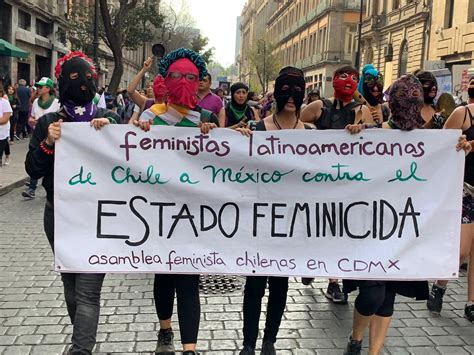 feministas latinoamericanas
de Chile a México contra el
ESTADO FEMINICIDA
asamblea feminista chilenas en CDMX